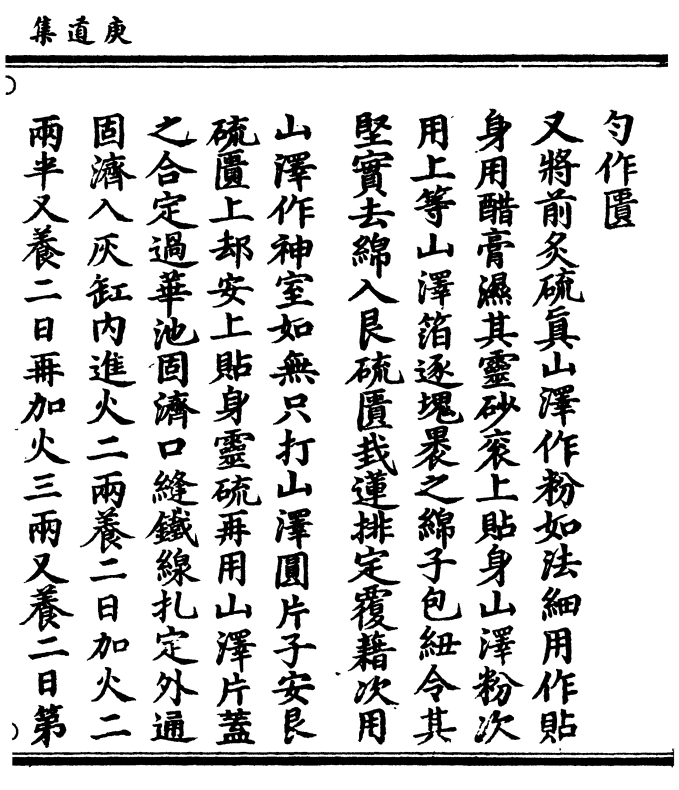 庚道集
勻作匱
又將前炙硫眞山澤作粉如法細用作貼
身用醋膏濕其靈砂衮上貼身山澤粉次
用上等山澤箔逐塊褁之綿子包紐令其
堅實去綿入艮硫匱栽蓮排定覆藉次用
山澤作神室如無只打山澤圓片子安艮
硫匱上却安上貼身靈硫再用山澤片蓋
之合定過華池固濟口縫鐵線扎定外通
固濟入灰缸內進火二兩養二日加火二
兩半又養二日再加火三兩又養二日第